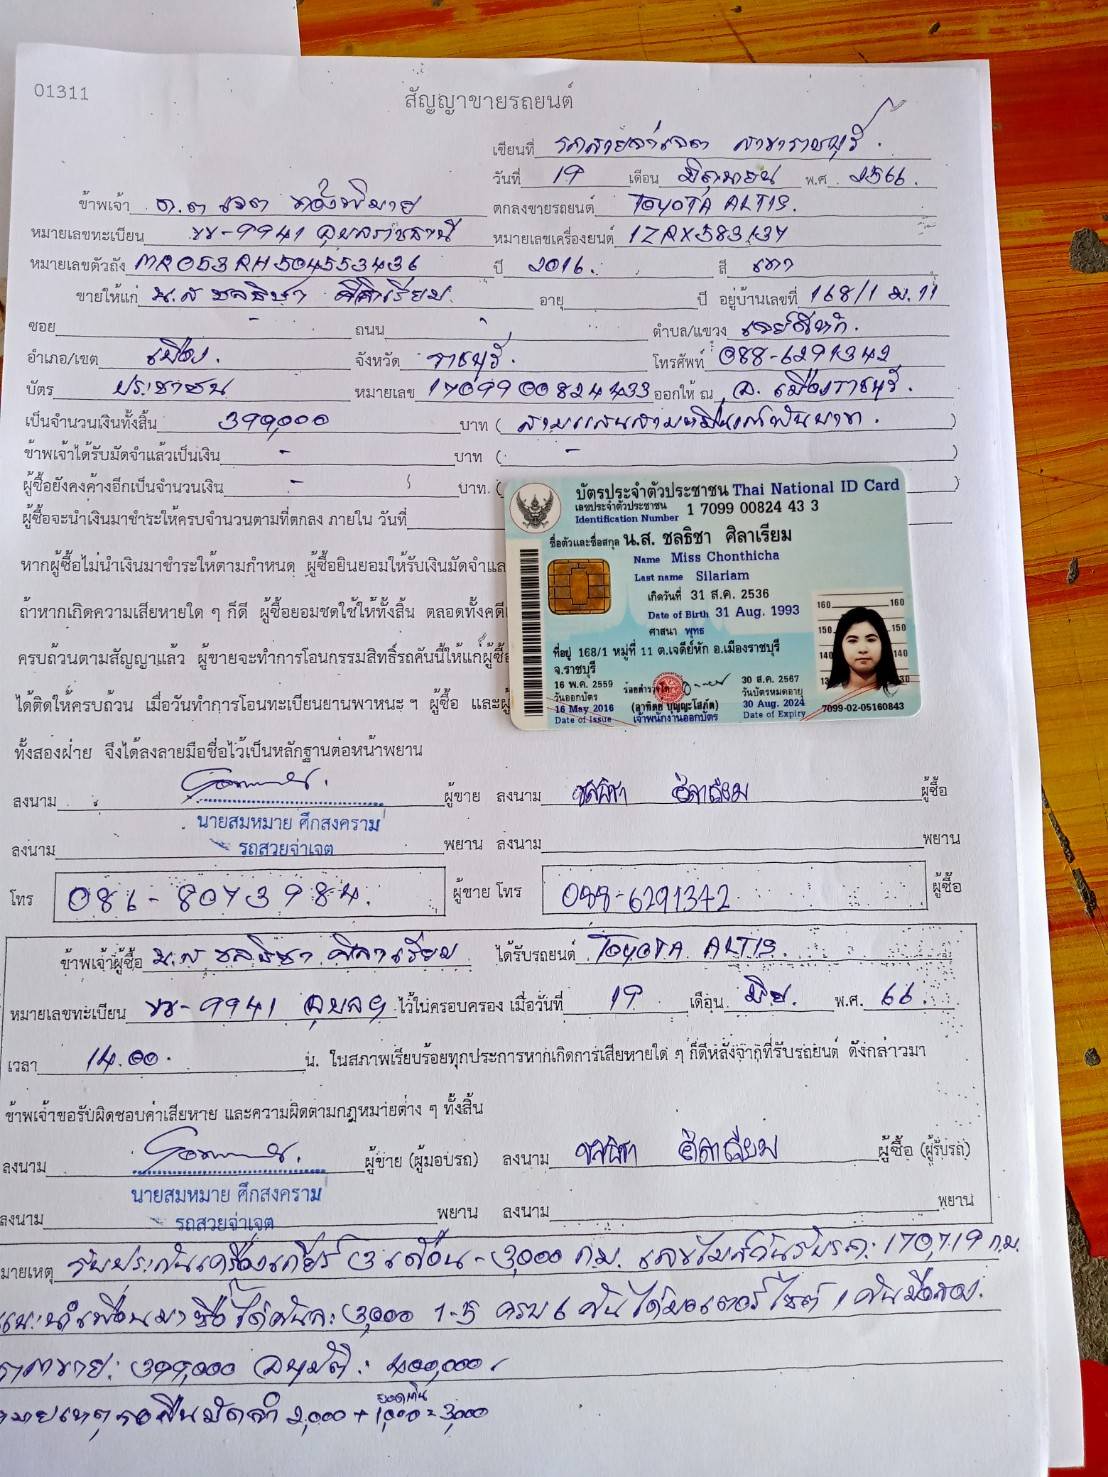 01311
สัญญาขายรถยนต์
เขียนที่ รถสวยจ่าเจต สาขาราชบุรี.
วันที่ 19 เดือน มิถุนายน พ.ศ. 2566.
ข้าพเจ้า ด.ต เจต ตกลงขายรถยนต์ TOYOTA ALTIS.
หมายเลขทะเบียน ขข-9941 อุบลราชธานี หมายเลขเครื่องยนต์ 1ZRX583137
หมายเลขตัวถัง MR053RH504553436 ปี 2016. สี เทา
ขายให้แก่ น.ส ชลธิชา ศิลาเรียม. อายุ ปี อยู่บ้านเลขที่ 168/1 ม.11
ซอย - ถนน - ตำบล/แขวง เจดีย์หัก.
อำเภอ/เขต เมือง. จังหวัด ราชบุรี. โทรศัพท์ 088-6291342
บัตร ประชาชน หมายเลข 1709900824433 ออกให้ ณ อ. เมืองราชบุรี.
เป็นจำนวนเงินทั้งสิ้น 399,000 บาท ( สามแสนเก้าหมื่นเก้าพันบาท. )
ข้าพเจ้าได้รับมัดจำแล้วเป็นเงิน - บาท ( - )
ผู้ซื้อยังคงค้างอีกเป็นจำนวนเงิน - บาท. ( )
ผู้ซื้อจะนำเงินมาชำระให้ครบจำนวนตามที่ตกลง ภายใน วันที่
หากผู้ซื้อไม่นำเงินมาชำระให้ตามกำหนด ผู้ซื้อยินยอมให้รับเงินมัดจำและ
ถ้าหากเกิดความเสียหายใด ๆ ก็ดี ผู้ซื้อยอมชดใช้ให้ทั้งสิ้น ตลอดทั้งคดี
ครบถ้วนตามสัญญาแล้ว ผู้ขายจะทำการโอนกรรมสิทธิ์รถคันนี้ให้แก่ผู้ซื้อ
ได้ติดให้ครบถ้วน เมื่อวันทำการโอนทะเบียนยานพาหนะ ฯ ผู้ซื้อ และผู้
ทั้งสองฝ่าย จึงได้ลงลายมือชื่อไว้เป็นหลักฐานต่อหน้าพยาน
บัตรประจำตัวประชาชน Thai National ID Card
เลขประจำตัวประชาชน 1 7099 00824 43 3
Identification Number
ชื่อตัวและชื่อสกุล น.ส. ชลธิชา ศิลาเรียม
Name Miss Chonthicha
Last name Silariam
เกิดวันที่ 31 ส.ค. 2536
Date of Birth 31 Aug. 1993
ศาสนา พุทธ
ที่อยู่ 168/1 หมู่ที่ 11 ต.เจดีย์หัก อ.เมืองราชบุรี
จ.ราชบุรี
16 พ.ค. 2559
วันออกบัตร
16 May 2016
Date of Issue
(อาทิตย์ บุญญะโสภัต)
เจ้าพนักงานออกบัตร
30 ส.ค. 2567
วันบัตรหมดอายุ
30 Aug. 2024
Date of Expiry
160 160
150 150
140 140
130
7099-02-05160843
ลงนาม ผู้ขาย ลงนาม ชลธิชา ศิลาเรียม ผู้ซื้อ
นายสมหมาย ศึกสงคราม
ลงนาม รถสวยจ่าเจต พยาน ลงนาม พยาน
โทร 081-8073984. ผู้ขาย โทร 088-6291342 ผู้ซื้อ
ข้าพเจ้าผู้ซื้อ น.ส ชลธิชา ศิลาเรียม ได้รับรถยนต์ TOYOTA ALTIS.
หมายเลขทะเบียน ขข-9941 อุบลฯ ไว้ในครอบครอง เมื่อวันที่ 19 เดือน มิย. พ.ศ. 66.
เวลา 14.00. น. ในสภาพเรียบร้อยทุกประการหากเกิดการเสียหายใด ๆ ก็ดีหลังจากที่รับรถยนต์ ดังกล่าวมา
ข้าพเจ้าขอรับผิดชอบค่าเสียหาย และความผิดตามกฎหมายต่าง ๆ ทั้งสิ้น
ลงนาม ผู้ขาย (ผู้มอบรถ) ลงนาม ชลธิชา ศิลาเรียม ผู้ซื้อ (ผู้รับรถ)
นายสมหมาย ศึกสงคราม
ลงนาม รถสวยจ่าเจต พยาน ลงนาม พยาน
มายเหตุ รับประกันเครื่องเกียร์ 3 เดือน - 3,000 ก.ม. เลขไมล์วันรับรถ: 170,719 ก.ม.
แนะนำเพื่อนมาซื้อได้คันละ 3,000 1-5 ครบ 6 คันได้มอเตอร์ไซต์ 1 คันมือสอง.
ราคาขาย: 399,000 อนุมัติ: 400,000
มายเหตุ รอคืนมัดจำ 2,000 + 1,000 = 3,000
ยอดเกิน